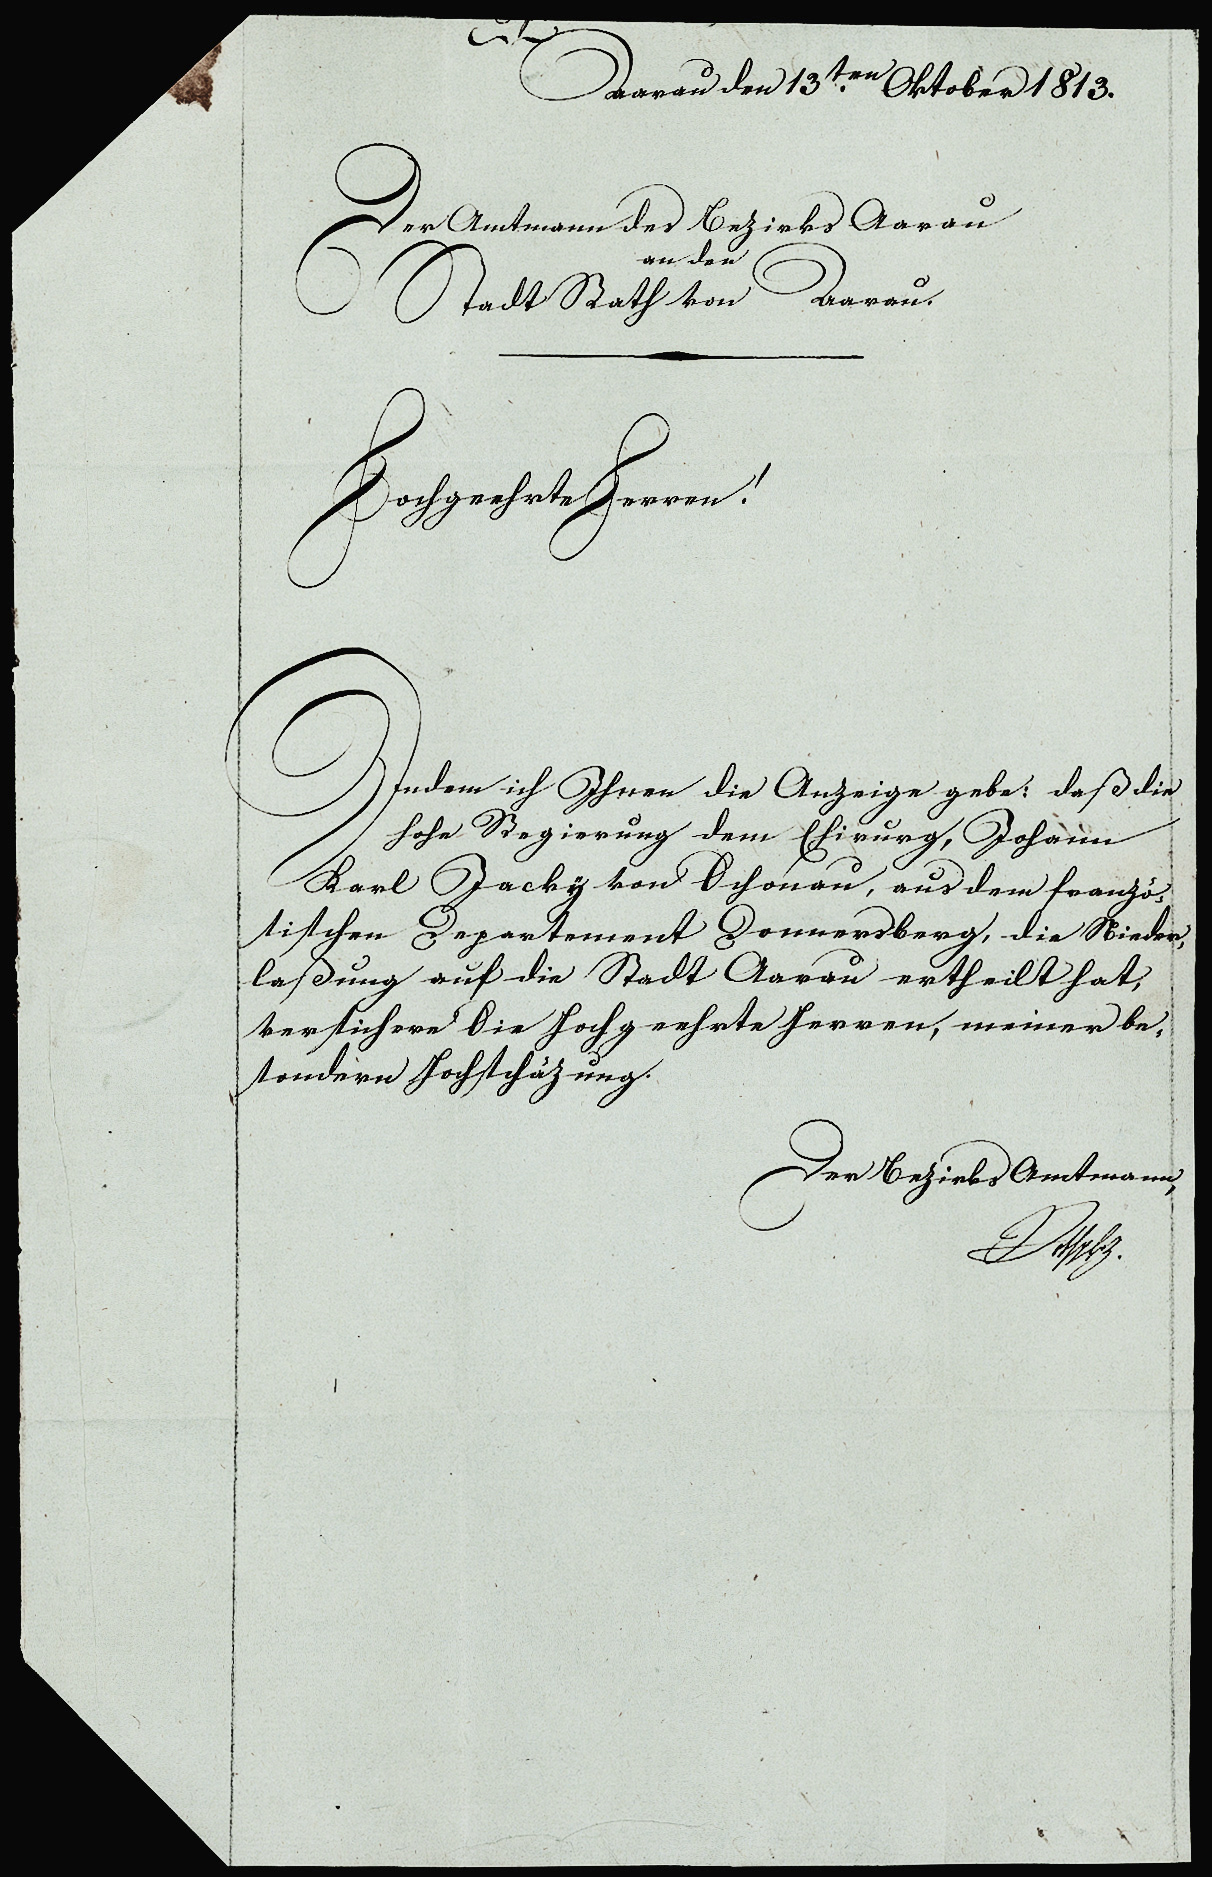 Aarau den 13.ten Oktober 1813.
Der Amtmann des Bezirks Aarau
an den
Stadt Rath von Aarau.
Hochgeehrte Herren!
Indem ich Ihnen die Anzeige gebe: daß die
hohe Regierung dem Chirurg, Johann
Karl Jacky von Schonau, aus dem franzö-
sischen Departement Donnersberg, die Nieder-
laßung auf die Stadt Aarau ertheilt hat,
versichere Sie hochgeehrte Herren, meiner be-
sondern Hochschäzung.
Der Bezirks Amtmann,